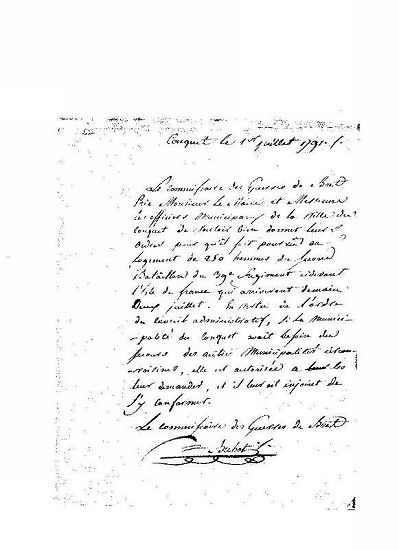 Conquet le 1er juillet 1791.
Le commissaire des Guerres de Brest
Prie Monsieur Le Maire et Messieurs
les officiers Municipaux de la Ville du
conquet de vouloir bien donner leurs
ordres pour qu'il soit pourvu au
logement de 250 hommes du second
Bataillon du 39e Régiment cidevant
l'isle de france qui arriveront demain
Deux juillet. En vertu de l'ordre
du conseil administratif, si La Munici-
-palité du Conquet avait besoin du
secours des autres Municipalités circon-
-voisines, elle est autorisée a
leur demander, et il leur est injoint de
s'y conformer.
Le commissaire des Guerres de Brest